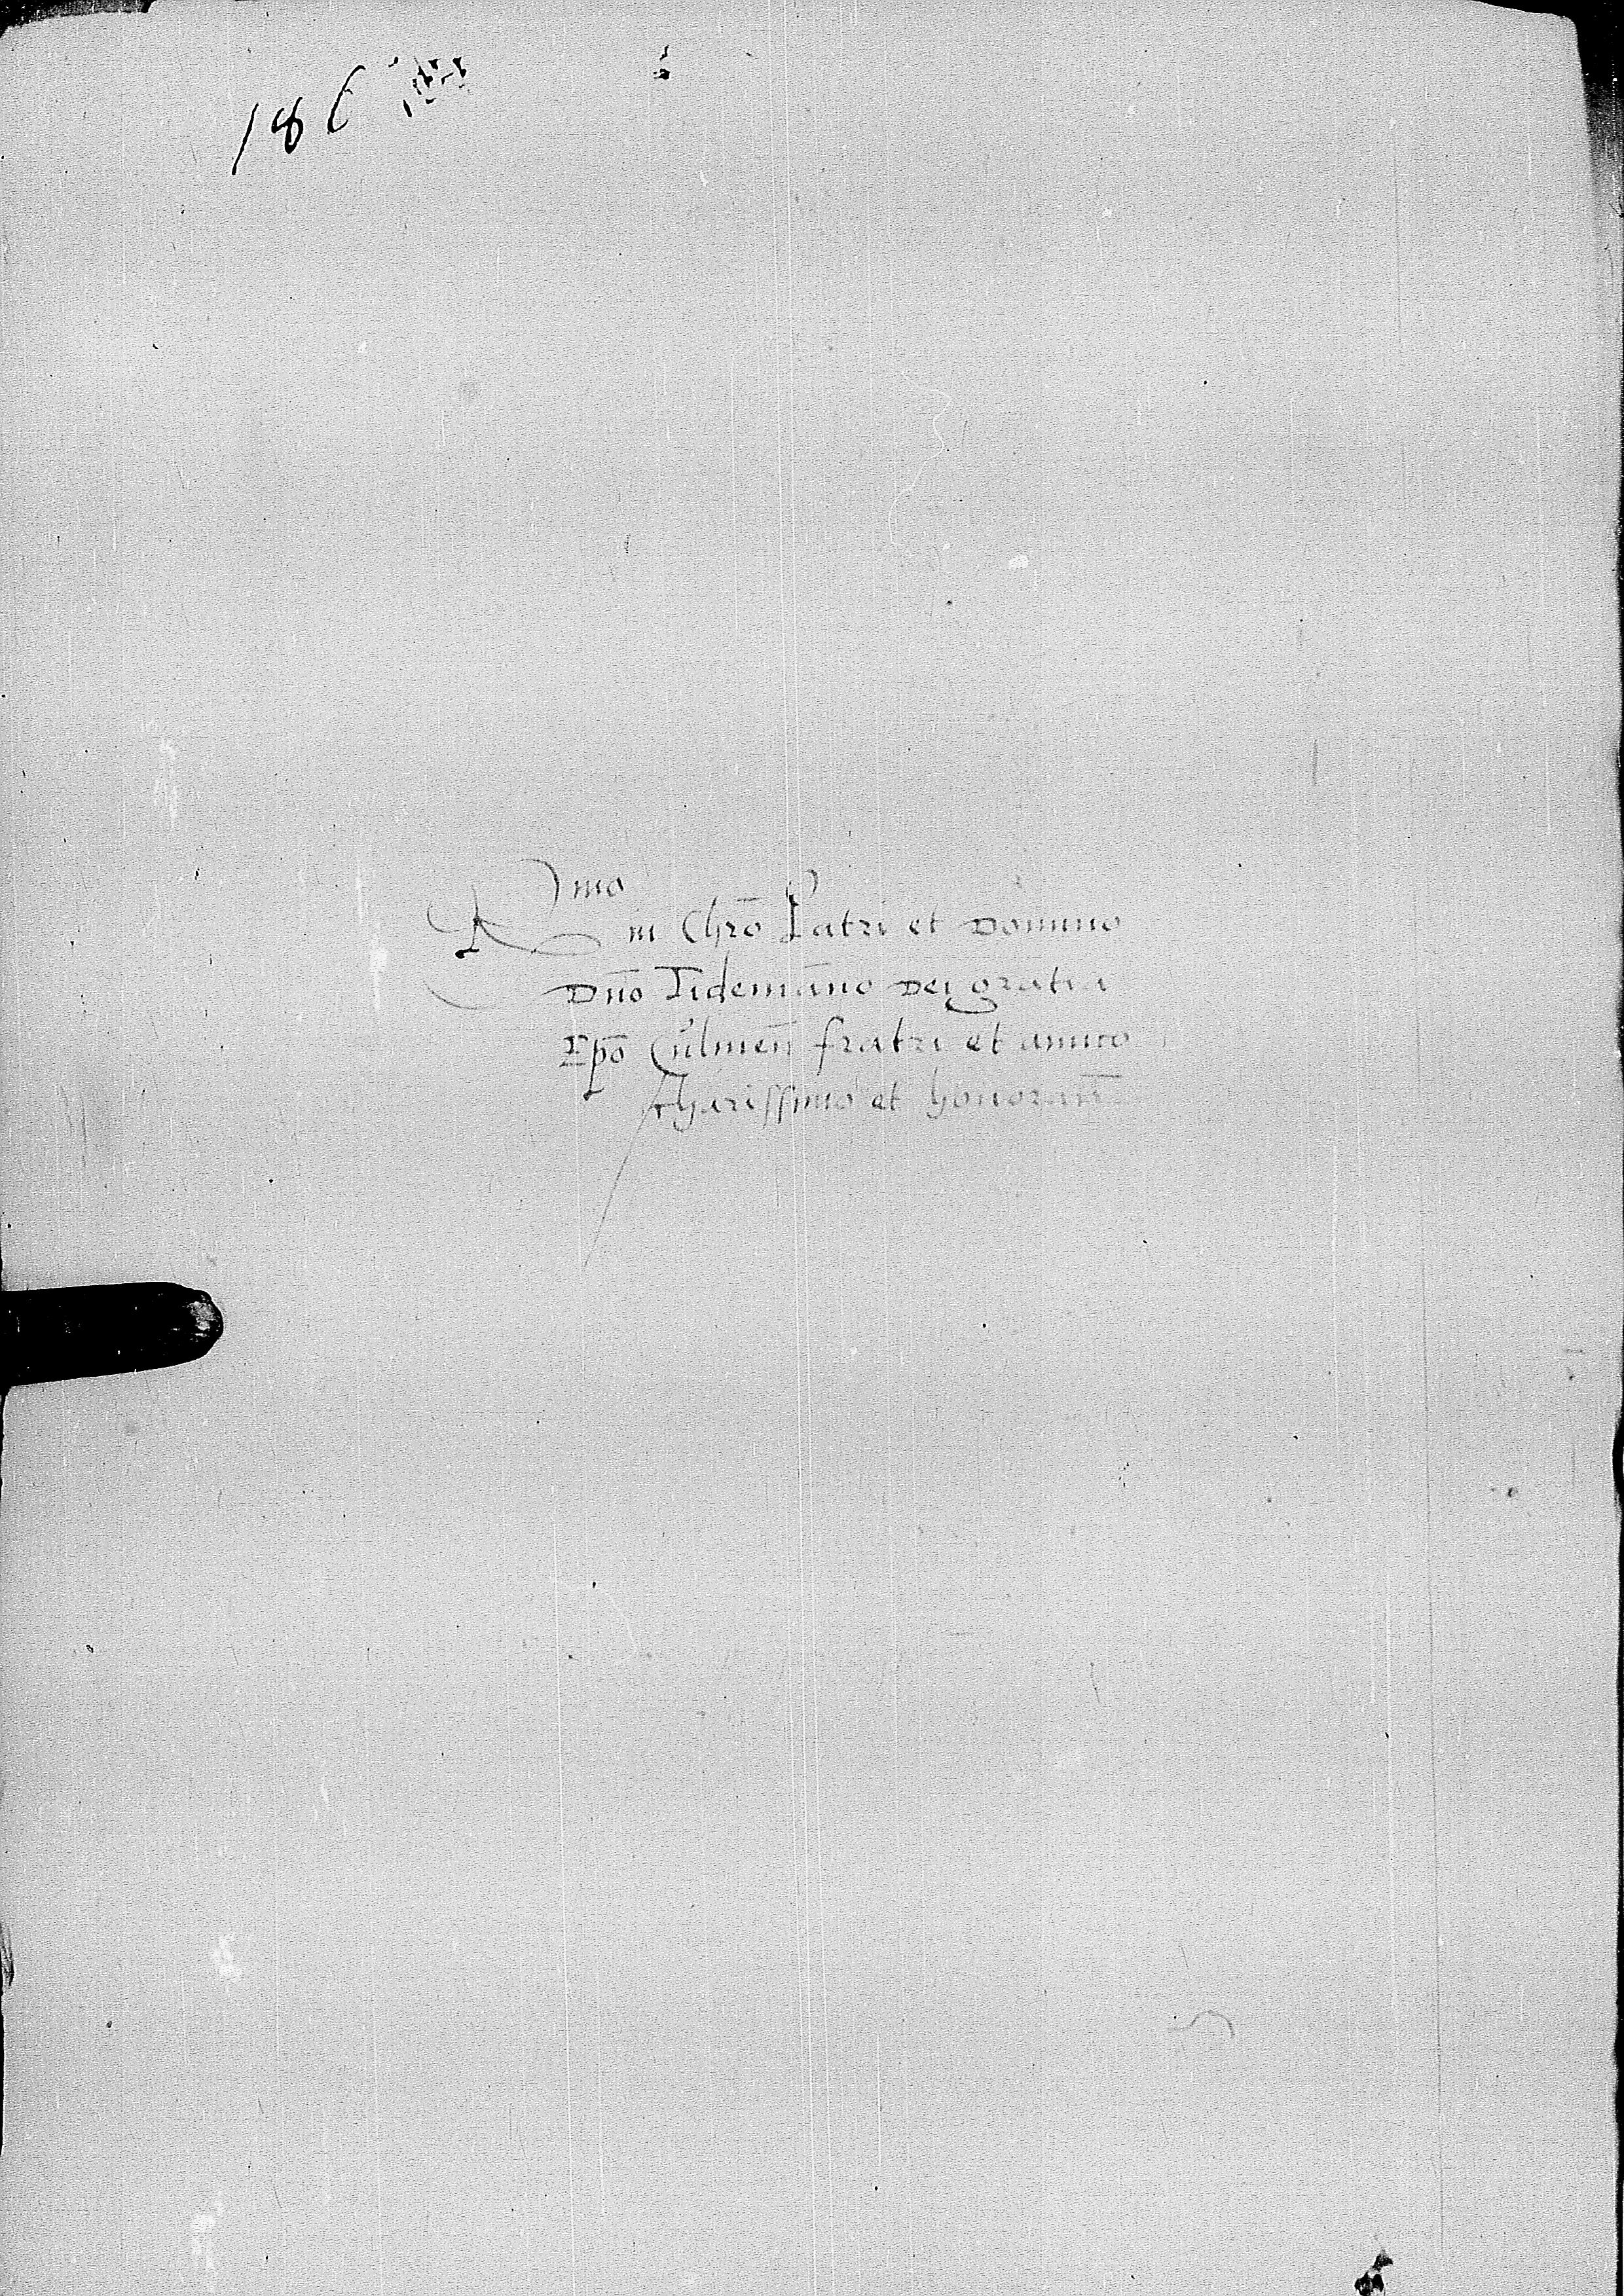 186
Rmo in Chr̄o Patri et Domino
Dn̄o Tidemāno Dei gratia
Ep̄o Culmen̄ fratri et amico
charissimo et honoran̄